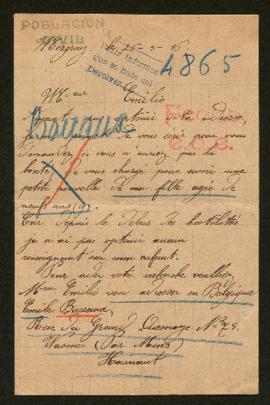 POBLACION
CIVIL
le 25-5-16
Sir. Informe
Que se hace así
Devolver
4865
Emilie
Baccaux
votre adresse,
je vous écris pour vous
demander si vous n'auriez pas la
bonté de vous charger pour avoir une
petite nouvelle de ma fille agée de
neuf ans (9).
Car depuis le debus des hostilités
je n'ai pas obtenir aucun
renseignement son mon enfant.
Pour aider votre recherche veuillez,
Mr Emilie vou adresser en Belgique
Emilie Baccaux,
Rue du Grand N° 75.
Wasme (Par Mons)
Hainaut